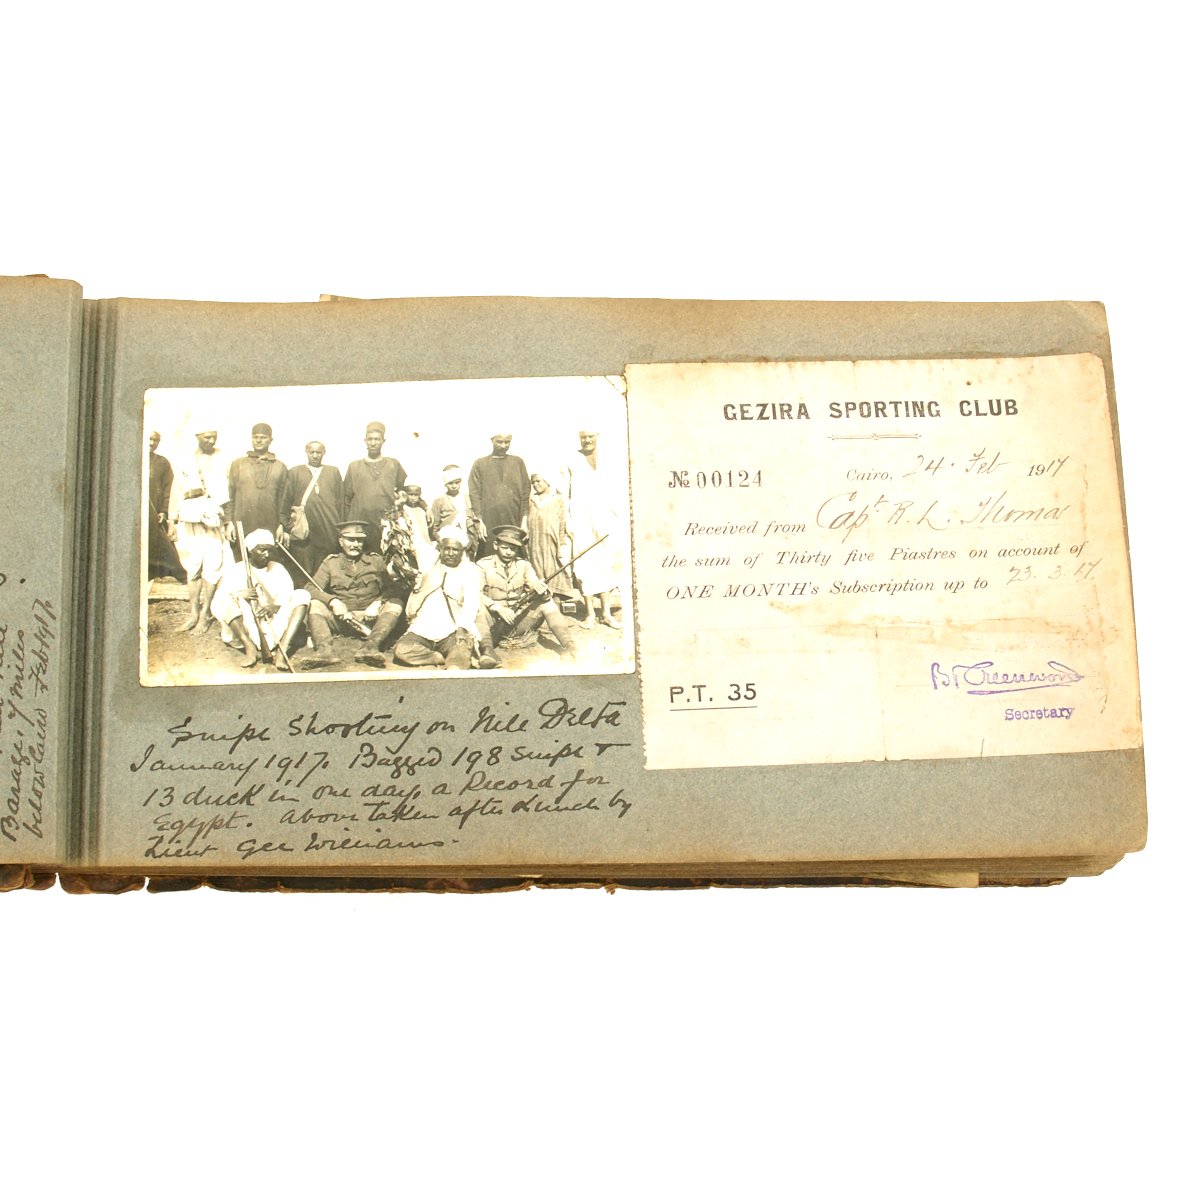 Barage, 7 miles
below Cairo Feb 1917
Snipe Shooting on Nile Delta
January 1917. Bagged 198 snipe &
13 duck in one day, a Record for
Egypt. Above taken after Lunch by
Lieut Gee Williams.
GEZIRA SPORTING CLUB
No 00124
Cairo, 24. Feb 1917
Received from Capt R. L. Thomas
the sum of Thirty five Piastres on account of
ONE MONTH's Subscription up to 23. 3. 17.
P.T. 35
Greenwood
Secretary